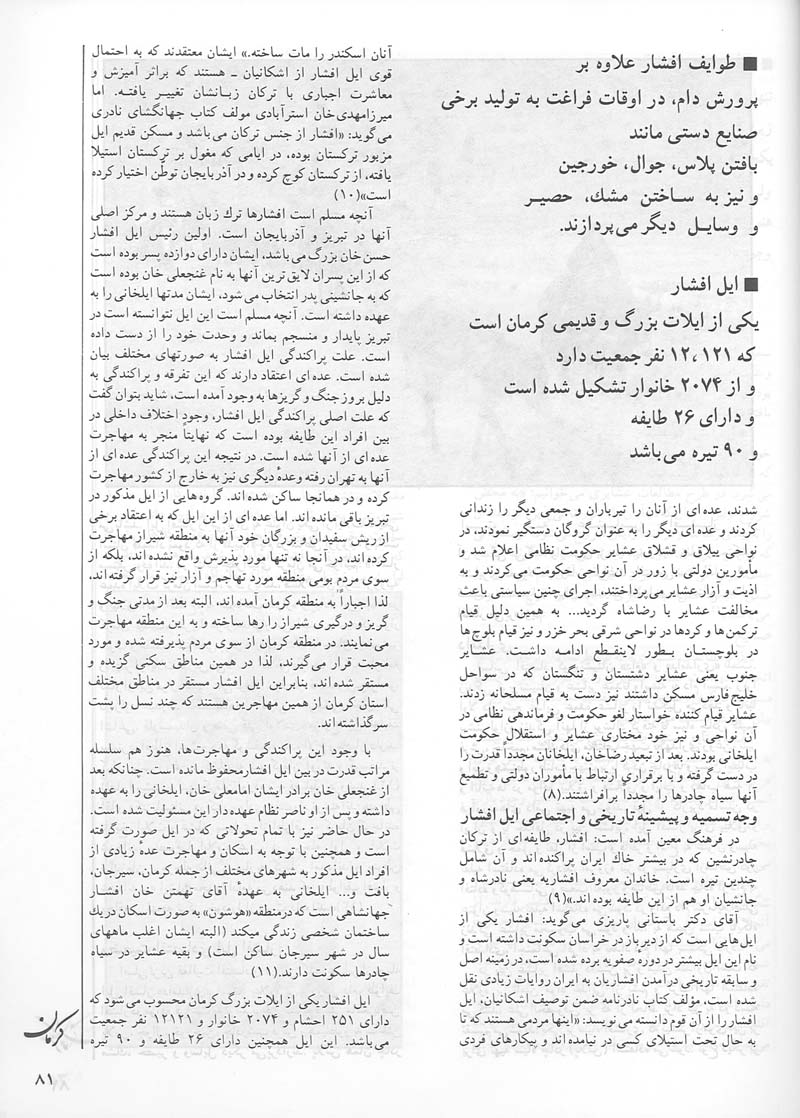 ■ طوایف افشار علاوه بر
پرورش دام، در اوقات فراغت به تولید برخی
صنایع دستی مانند
بافتن پلاس، جوال، خورجین
و نیز به ساختن مشك، حصیـر
و وسایـل دیگر می‌پردازند.
■ ایل افشار
یکی از ایلات بزرگ و قدیمی کرمان است
که ۱۲،۱۲۱ نفر جمعیت دارد
و از ۲۰۷۴ خانوار تشکیل شده است
و دارای ۲۶ طایفه
و ۹۰ تیره می‌باشد
شدند، عده‌ای از آنان را تیرباران و جمعی دیگر را زندانی
کردند و عده‌ای دیگر را به عنوان گروگان دستگیر نمودند، در
نواحی ییلاق و قشلاق عشایر حکومت نظامی اعلام شد و
مأمورین دولتی با زور در آن نواحی حکومت می‌کردند و به
اذیت و آزار عشایر می‌پرداختند، اجرای چنین سیاستی باعث
مخالفت عشایر با رضاشاه گردید... به همین دلیل قیام
ترکمن‌ها و کردها در نواحی شرقی بحر خزر و نیز قیام بلوچ‌ها
در بلوچستان بطور لاینقطع ادامـه داشـت. عشـایر
جنوب یعنی عشایر دشتستان و تنگستان که در سواحل
خلیج‌فارس مسکن داشتند نیز دست به قیام مسلحانه زدند.
عشایر قیام کننده خواستار لغو حکومت و فرماندهی نظامی در
آن نواحی و نیز خود مختاری عشایر و استقلال حکومت
ایلخانی بودند. بعد از تبعید رضاخان، ایلخانان مجدداً قدرت را
در دست گرفته و با برقراری ارتباط با مأموران دولتی و تطمیع
آنها سیاه چادرها را مجدداً برافراشتند.(۸)
وجه تسمیه و پیشینهٔ تاریخی و اجتماعی ایل افشار
در فرهنگ معین آمده است: افشار، طایفه‌ای از ترکان
چادرنشین که در بیشتر خاك ایران پراکنده‌اند و آن شامل
چندین تیره است. خاندان معروف افشاریه یعنی نادرشاه و
جانشیان او هم از این طایفه بوده‌اند.»(۹)
آقای دکتر باستانی پاریزی می‌گوید: افشار یکی از
ایل‌هایی است که از دیر باز در خراسان سکونت داشته است و
نام این ایل بیشتر در دورهٔ صفویه برده شده است، در زمینه اصل
و سابقه تاریخی درآمدن افشاریان به ایران روایات زیادی نقل
شده است، مؤلف کتاب نادرنامه ضمن توصیف اشکانیان، ایل
افشار را از آن قوم دانسته می‌نویسد: «اینها مردمی هستند که تا
به حال تحت استیلای کسی در نیامده‌اند و پیکارهای فردی
آنان اسکندر را مات ساخته.» ایشان معتقدند که به احتمال
قوی ایل افشار از اشکانیان ـ هستند که براثر آمیزش و
معاشرت اجباری با ترکان زبـانشان تغییـر یافتـه. اما
میرزامهدی‌خان استرآبادی مولف کتاب جهانگشای نادری
می‌گوید: «افشار از جنس ترکان می‌باشد و مسکن قدیم ایل
مزبور ترکستان بوده، در ایامی که مغول بر ترکستان استیلا
یافته، از ترکستان کوچ کرده و در آذربایجان توطّن اختیار کرده
است»(۱۰)
آنچه مسلم است افشارها ترك زبان هستند و مرکز اصلی
آنها در تبریز و آذربایجان است. اولین رئیس ایل افشار
حسن خان بزرگ می‌باشد، ایشان دارای دوازده پسر بوده است
که از این پسران لایق‌ترین آنها به نام غنجعلی خان بوده است
که به جانشینی پدر انتخاب می‌شود، ایشان مدتها ایلخانی را به
عهده داشته است. آنچه مسلم است این ایل نتوانسته است در
تبریز پایدار و منسجم بماند و وحدت خود را از دست داده
است. علت پراکندگی ایل افشار به صورتهای مختلف بیان
شده است. عده‌ای اعتقاد دارند که این تفرقه و پراکندگی به
دلیل بروز جنگ و گریزها به وجود آمده است، شاید بتوان گفت
که علت اصلی پراکندگی ایل افشار، وجود اختلاف داخلی در
بین افراد این طایفه بوده است که نهایتاً منجر به مهاجرت
عده‌ای از آنها شده است. در نتیجه این پراکندگی عده‌ای از
آنها به تهران رفته وعدهٔ دیگری نیز به خارج از کشور مهاجرت
کرده و در همانجا ساکن شده‌اند. گروه‌هایی از ایل مذکور در
تبریز باقی مانده‌اند. اما عده‌ای از این ایل که به اعتقاد برخی
از ریش سفیدان و بزرگان خود آنها به منطقه شیراز مهاجرت
کرده‌اند، در آنجا نه تنها مورد پذیرش واقع نشده‌اند، بلکه از
سوی مردم بومی منطقه مورد تهاجم و آزار نیز قرار گرفته‌اند،
لذا اجباراً به منطقه کرمان آمده‌اند، البته بعد از مدتی جنگ و
گریز و درگیری شیراز را رها ساخته و به این منطقه مهاجرت
می‌نمایند. در منطقه کرمان از سوی مردم پذیرفته شده و مورد
محبت قرار می‌گیرند، لذا در همین مناطق سکنی گزیده و
مستقر شده‌اند، بنابراین ایل افشار مستقر در مناطق مختلف
استان کرمان از همین مهاجرین هستند که چند نسل را پشت
سرگذاشته‌اند.
با وجود این پراکندگی و مهاجرت‌ها، هنوز هم سلسله
مراتب قدرت در بین ایل افشارمحفوظ مانده است. چنانکه بعد
از غنجعلی خان برادر ایشان امامعلی خان، ایلخانی را به عهده
داشته و پس از او ناصر نظام عهده‌دار این مسئولیت شده است.
در حال حاضر نیز با تمام تحولاتی که در ایل صورت گرفته
است و همچنین با توجه به اسکان و مهاجرت عدهٔ زیادی از
افراد ایل مذکور به شهرهای مختلف از جمله کرمان، سیرجان،
بافت و... ایلخانی به عهدهٔ آقای تهمتن خان افشـار
جهانشاهی است که درمنطقه «هوشون» به صورت اسکان دریك
ساختمان شخصی زندگی میکند (البته ایشان اغلب ماههای
سال در شهر سیرجان ساکن است) و بقیه عشایر در سیاه
چادرها سکونت دارند.(۱۱)
ایل افشار یکی از ایلات بزرگ کرمان محسوب می‌شود که
دارای ۲۵۱ احشام و ۲۰۷۴ خانوار و ۱۲۱۲۱ نفر جمعیت
می‌باشد. این ایل همچنین دارای ۲۶ طایفه و ۹۰ تیره
کرمان
۸۱